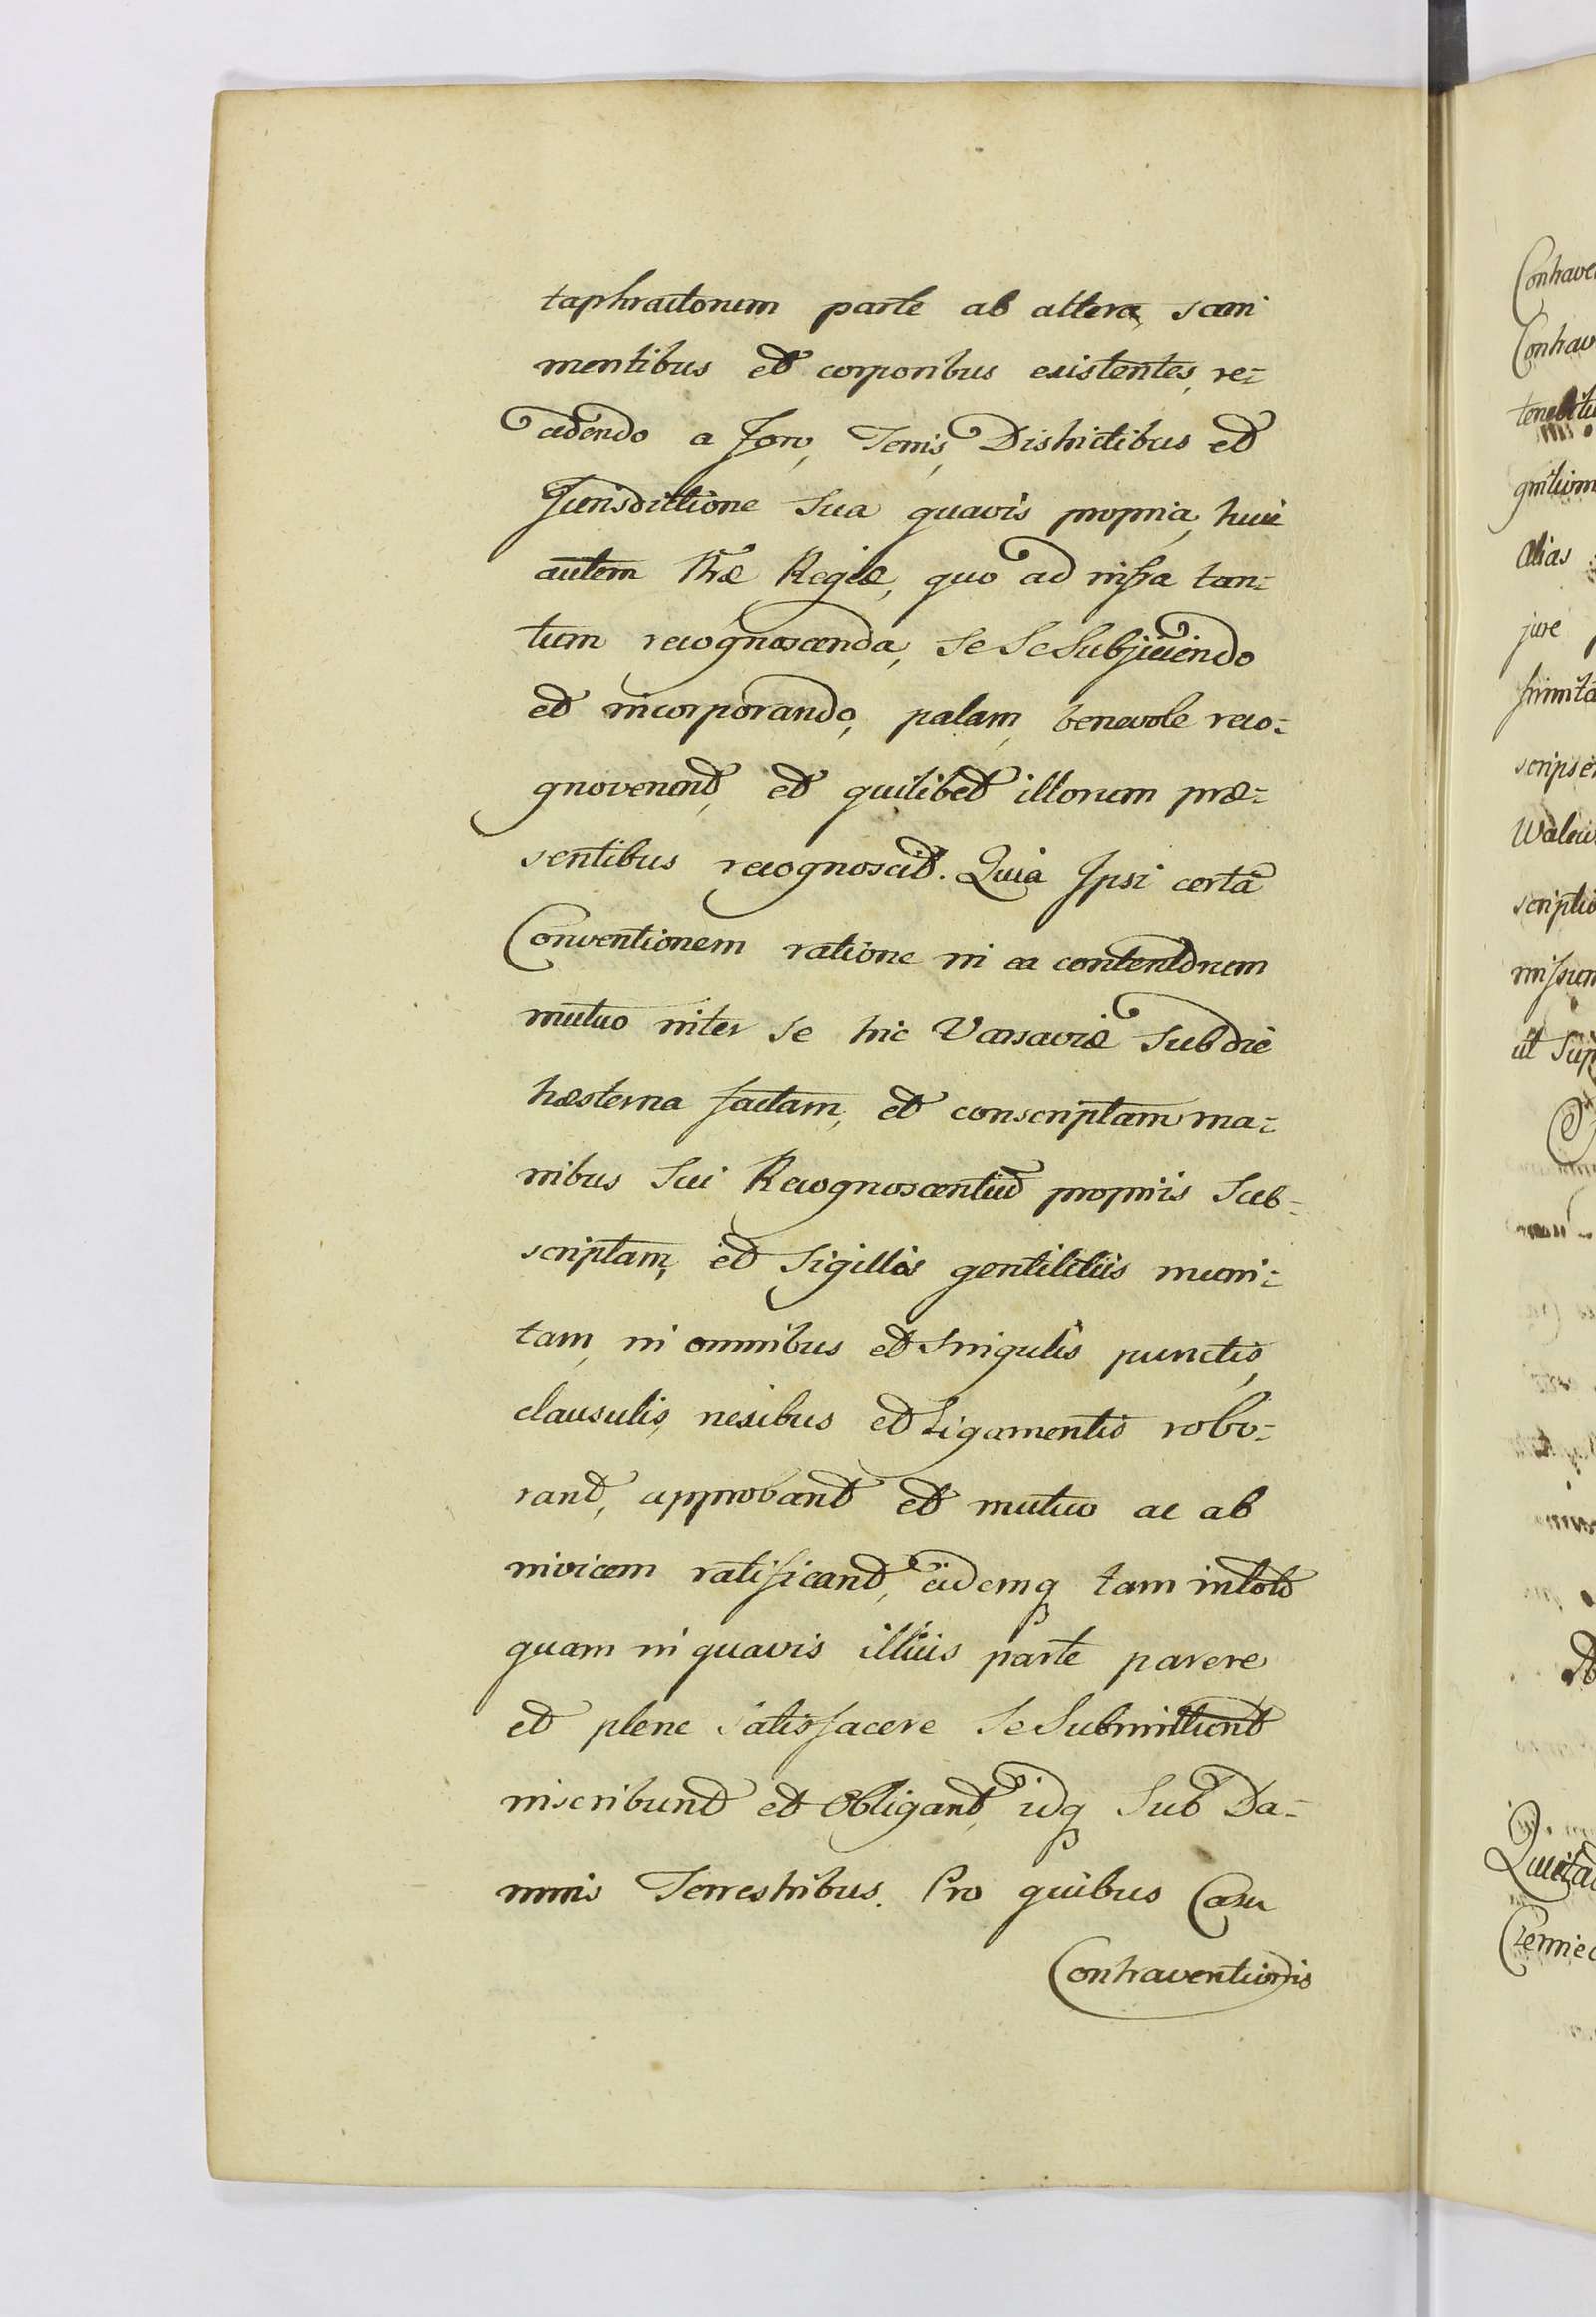 taphractorum parte ab altera, sani
mentibus et corporibus existentes, re-
cedendo a Foro, Terris, Districtibus et
Jurisdictione sua quavis propria, huic
autem Præ Regiæ, quo ad infra tan-
tum recognoscenda, se se subjiciendo
et incorporando, palam, benevole reco-
gnoverunt, et quilibet illorum præ-
sentibus recognoscit. Quia Ipsi certã
Conventionem ratione in ea contentorum
mutuo inter se hic Varsaviæ sub die
hæsterna factam, et conscriptam ma-
nibus sui Recognoscentiũ propriis sub-
scriptam, et sigillis gentilitiis muni-
tam, in omnibus et singulis punctis,
clausulis, nexibus et Ligamentis robo-
rant, approbant et mutuo ac ab
invicem ratificant, eidemq tam in toto
quam in quavis illius parte parere
et plene satisfacere se submittunt
inscribunt et obligant, idq sub Da-
mnis Terrestribus. Pro quibus Casu
Contraventionis
Contrave
Contrav
tenebitu
gnition
alias
jure
firmita
scripse
Walew
scriptio
missum
ut sup
Quieta
Czernie